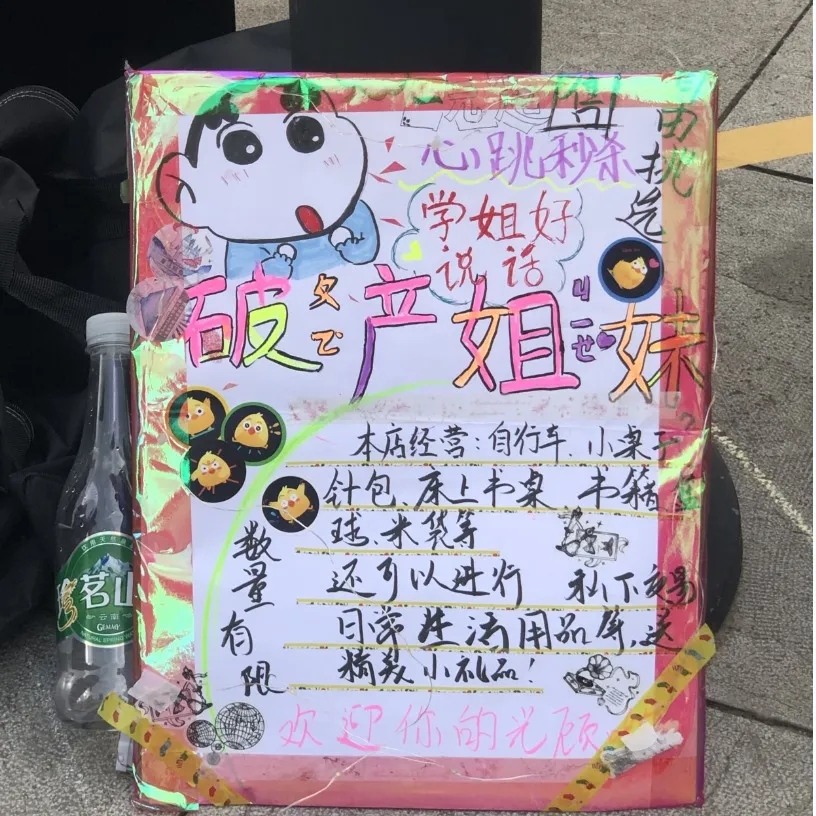 心跳秒杀
自挑选
学姐好
说话
破产姐妹
本店经营：自行车、小桌子
针包、床上书桌 书籍
球、米袋等
还可以进行 私下交易
日常生活用品等，送
精致小礼品！
数量有限
欢迎你的光顾
茗山
云南
GEMMY
NATURAL SPRING